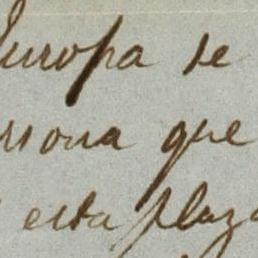 Europa se
ersona que
esta plaza